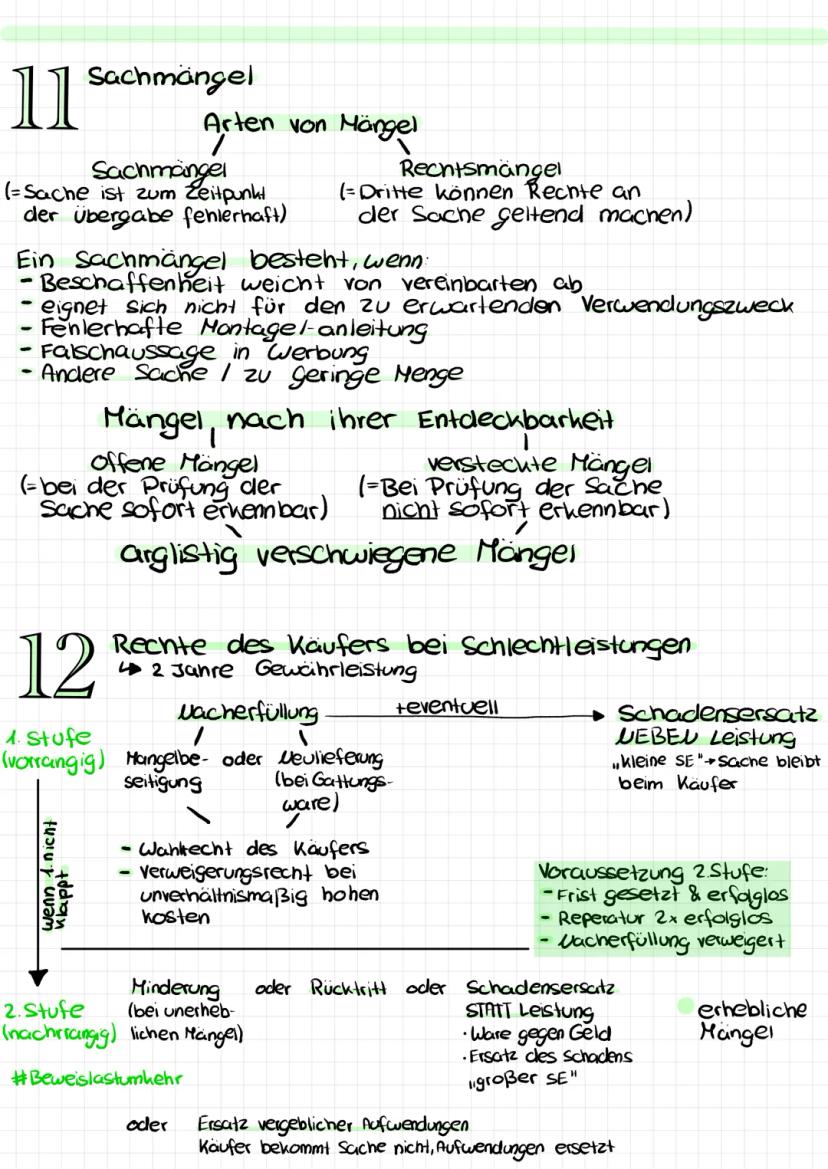 11 Sachmängel
Arten von Mängel
Sachmängel
(=Sache ist zum Zeitpunkt
der übergabe fehlerhaft)
Rechtsmängel
(=Dritte können Rechte an
der Sache geltend machen)
Ein Sachmängel besteht, wenn:
- Beschaffenheit weicht von vereinbarten ab
- eignet sich nicht für den zu erwartenden Verwendungszweck
- Fehlerhafte Montage/-anleitung
- Falschaussage in Werbung
- Andere Sache / zu geringe Menge
Mängel nach ihrer Entdeckbarkeit
offene Mängel
(=bei der Prüfung der
Sache sofort erkennbar)
versteckte Mängel
(=Bei Prüfung der Sache
nicht sofort erkennbar)
arglistig verschwiegene Mängel
12 Rechte des Käufers bei Schlechtleistungen
↳ 2 Jahre Gewährleistung
1. Stufe
(vorrangig)
Nacherfüllung
+eventuell
Schadensersatz
NEBEN Leistung
„kleine SE"→Sache bleibt
beim Käufer
Mangelbe-
seitigung
oder
Neulieferung
(bei Gattungs-
ware)
- Wahlrecht des Käufers
- Verweigerungsrecht bei
unverhältnismäßig hohen
kosten
wenn 1. nicht
klappt
Voraussetzung 2.Stufe:
- Frist gesetzt & erfolglos
- Reperatur 2x erfolglos
- Nacherfüllung verweigert
2. Stufe
(nachrrangig)
Minderung
(bei unerheb-
lichen Mängel)
oder Rücktritt oder
Schadensersatz
STATT Leistung
· Ware gegen Geld
· Ersatz des Schadens
„großer SE"
erhebliche
Mängel
#Beweislastumkehr
oder Ersatz vergeblicher Aufwendungen
Käufer bekommt Sache nicht, Aufwendungen ersetzt